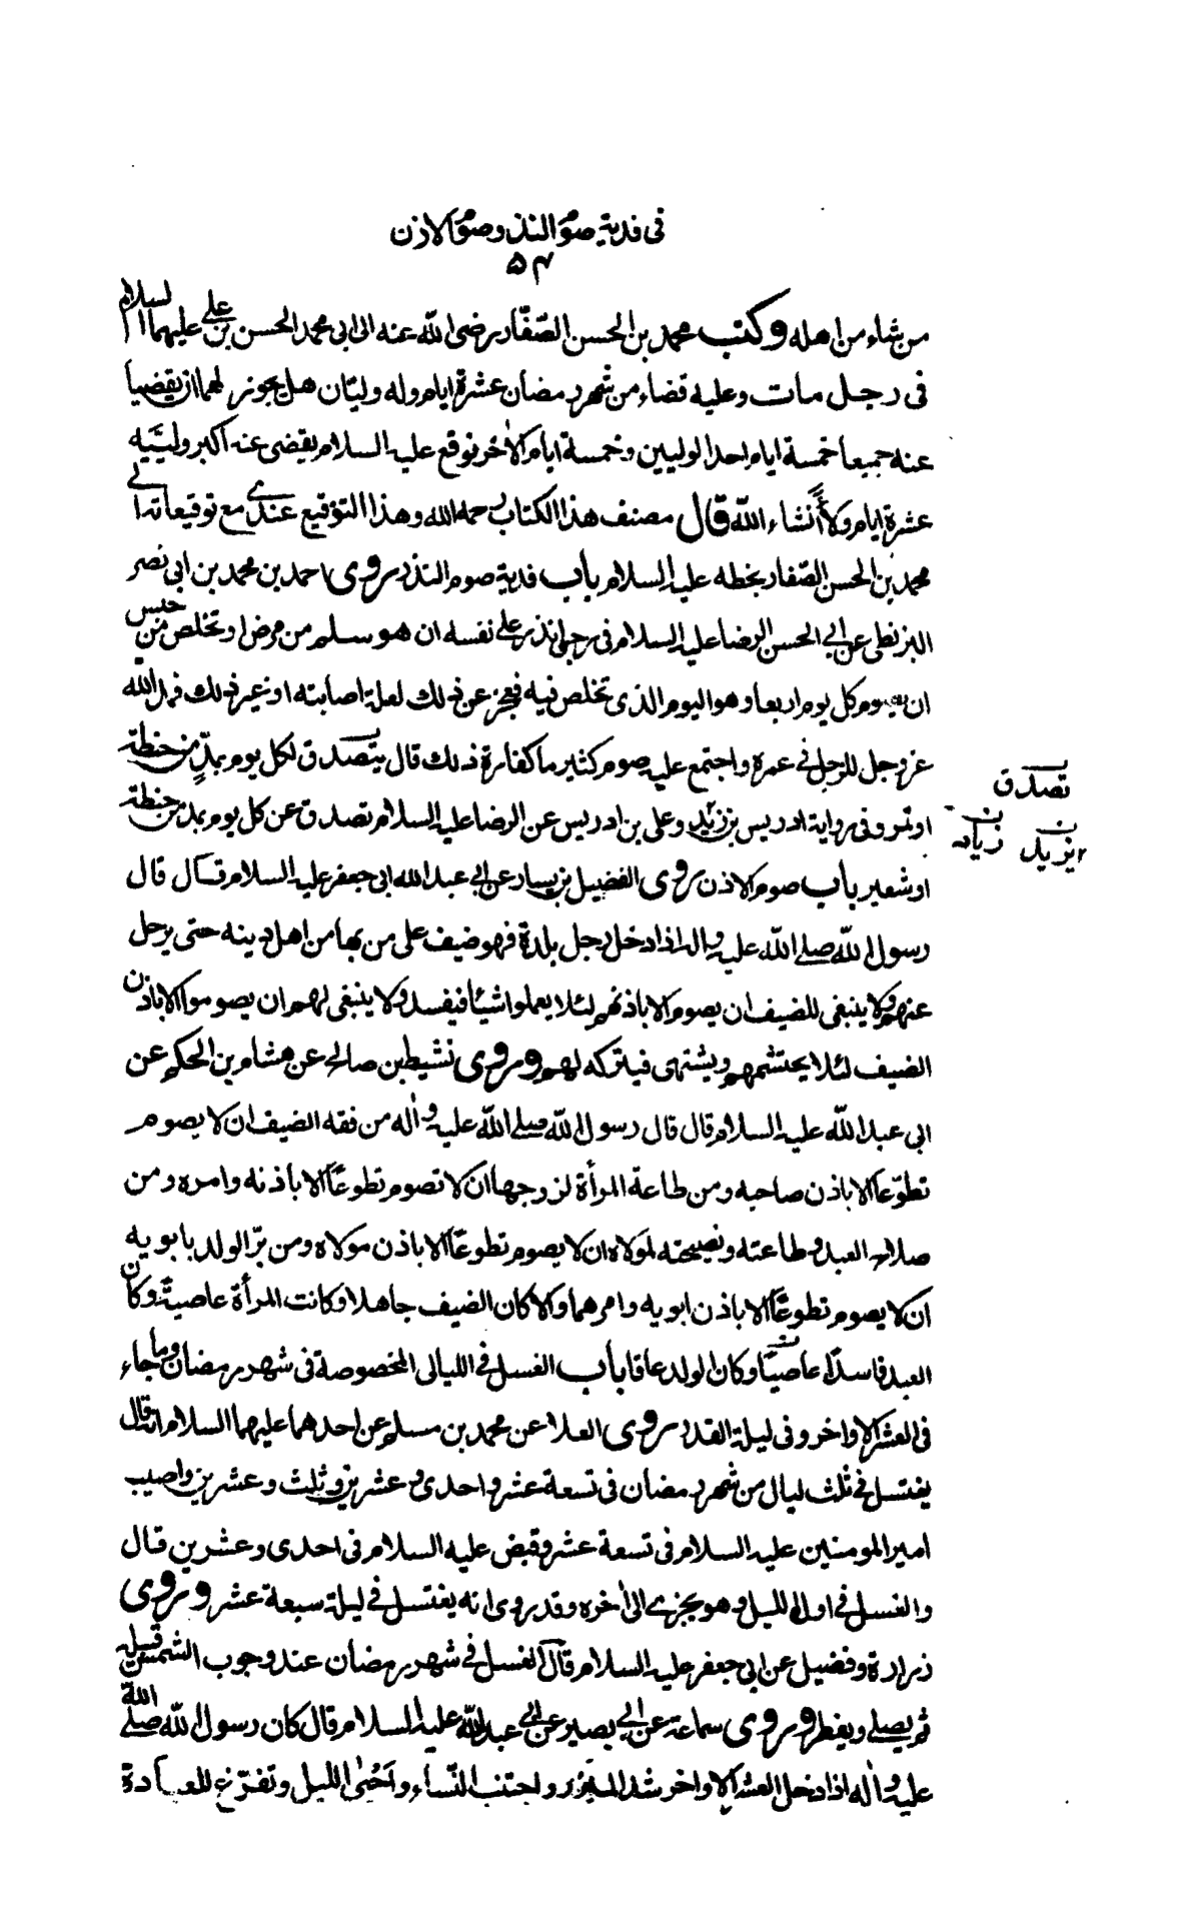 فی فدیة صوم النذر وصوم الاذن
۵۴
من شاء من اهله وکتب محمد بن الحسن الصّفّار رضی اللّه عنه الی ابی محمد الحسن بن علی علیهما السلام
فی رجل مات وعلیه قضاء من شهر رمضان عشرة ایام وله ولیّان هل یجوز لهما ان یقضیا
عنه جمیعا خمسة ایام احد الولیین وخمسة ایام الاٰخر فوقع علیه السلام یقضی عنه اکبر ولییّه
عشرة ایام ولاءً انشاء اللّه قال مصنف هذا الکتاب رحمه الله وهذا التوقیع عندی مع توقیعاته الی
محمد بن الحسن الصّفار بخطه علیه السلام باب فدیة صوم النذر روی احمد بن محمد بن ابی نصر
البزنطی عن ابی الحسن الرضا علیه السلام فی رجل نذر علی نفسه ان هو سلم من مرض او تخلص من حبس
ان یصوم کل یوم اربعا وهو الیوم الذی تخلص فیه فعجز عن ذلک لعلة اصابته او غیر ذلک فمد الله
عز وجل للرجل فی عمره واجتمع علیه صوم کثیر ما کفارة ذلک قال یتصدق لکل یوم بمدٍّ من حنطة
او تمر وفی روایة ادریس بن زید وعلی بن ادریس عن الرضا علیه السلام تصدق عن کل یوم بمد من حنطة
او شعیر باب صوم الاذن روی الفضیل بن یسار عن ابی عبد الله ابی جعفر علیه السلام قال قال
رسول اللّه صلی اللّه علیه واله اذا دخل رجل بلدة فهو ضیف علی من بها من اهل دینه حتی یرحل
عنهم ولا ینبغی للضیف ان یصوم الا باذنهم لئلا یعملوا شیئا فیفسد ولا ینبغی لهم ان یصوموا الا باذن
الضیف لئلا یحتشمهم ویشتهی فیترکه لهم وروی نشیط بن صالح عن هشام بن الحکم عن
ابی عبد اللّه علیه السلام قال قال رسول اللّه صلی اللّه علیه واٰله من فقه الضیف ان لا یصوم
تطوّعاً الا باذن صاحبه ومن طاعة المرأة لزوجها ان لا تصوم تطوعاً الا باذنه وامره ومن
صلاح العبد وطاعته ونصیحته لمولاه ان لا یصوم تطوعًا الا باذن مولاه ومن برّ الولد بابویه
ان لا یصوم تطوعًا الا باذن ابویه وامرهما والا کان الضیف جاهلا وکانت المرأة عاصیةً وکان
العبد فاسدًا عاصیًا وکان الولد عاقا باب الغسل فی اللیالی المخصوصة فی شهر رمضان وما جاء
فی العشر الاواخر وفی لیلة القدر روی العلا عن محمد بن مسلم عن احدهما علیهما السلام انه قال
یغتسل فی ثلث لیال من شهر رمضان فی تسعة عشر واحدی وعشرین وثلث وعشرین واصیب
امیر المومنین علیه السلام فی تسعة عشر وقبض علیه السلام فی احدی وعشرین قال
والغسل فی اول اللیل وهو یجزی الی اٰخره وقد روی انه یغتسل فی لیلة سبعة عشر وروی
زرارة وفضیل عن ابی جعفر علیه السلام قال الغسل فی شهر رمضان عند وجوب الشمس قبیله
ثم یصلی ویفطر وروی سماعة عن ابی بصیر عن ابی عبد اللّه علیه السلام قال کان رسول اللّه صلی الله
علیه واٰله اذا دخل العشر الاواخر شد المئزر واجتنب النّساء واَحْیٰی اللیل وتفرّغ للعبادة
تصدق
زیاد یزید